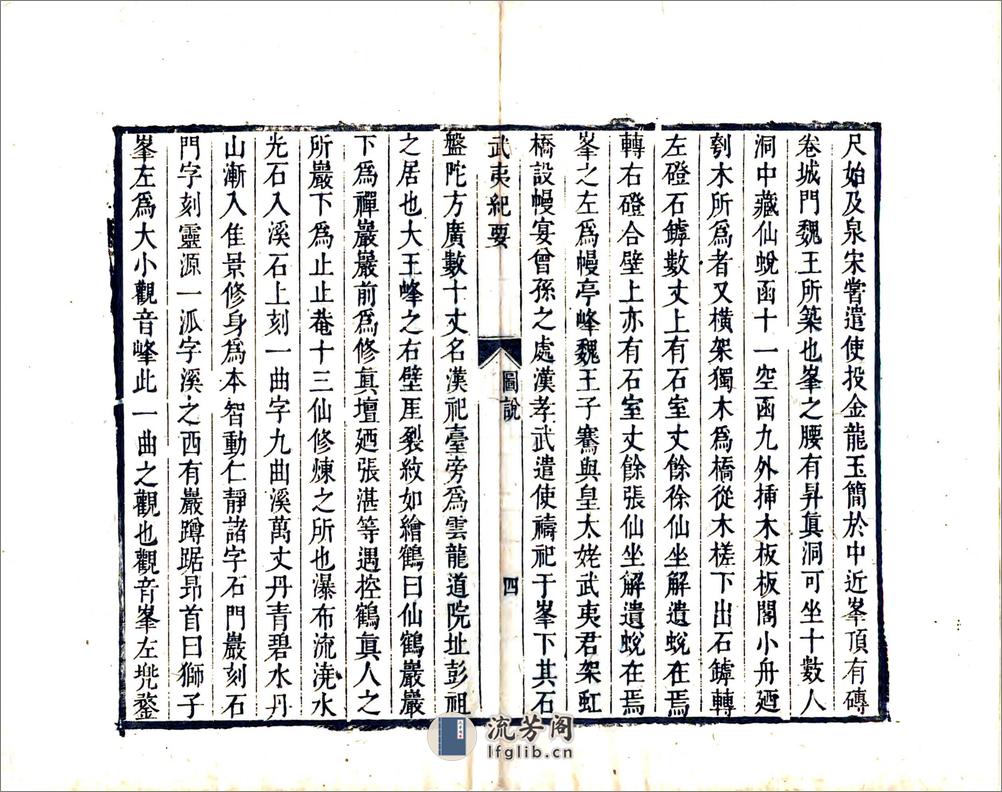 尺始及泉宋嘗遣使投金龍玉簡於中近峯頂有磚
卷城門魏王所築也峯之腰有昇眞洞可坐十數人
洞中藏仙蛻函十一空函九外揷木板板閣小舟廼
刳木所爲者又橫架獨木爲橋從木槎下出石罅轉
左磴石罅數丈上有石室丈餘徐仙坐解遺蛻在焉
轉右磴合壁上亦有石室丈餘張仙坐解遺蛻在焉
峯之左爲幔亭峰魏王子騫與皇太姥武夷君架虹
橋設幔宴曾孫之處漢孝武遣使禱祀于峯下其石
武夷紀要
圖說
四
盤陀方廣數十丈名漢祀臺旁爲雲龍道院址彭祖
之居也大王峰之右壁厓裂紋如繪鶴曰仙鶴巖巖
下爲禪巖巖前爲修眞壇廼張湛等遇控鶴眞人之
所巖下爲止止菴十三仙修煉之所也瀑布流澆水
光石入溪石上刻一曲字九曲溪萬丈丹青碧水丹
山漸入佳景修身爲本智動仁靜諸字石門巖刻石
門字刻靈源一派字溪之西有巖蹲踞昂首曰獅子
峯左爲大小觀音峰此一曲之觀也觀音峯左兠鍪
流芳阁
lfglib.cn